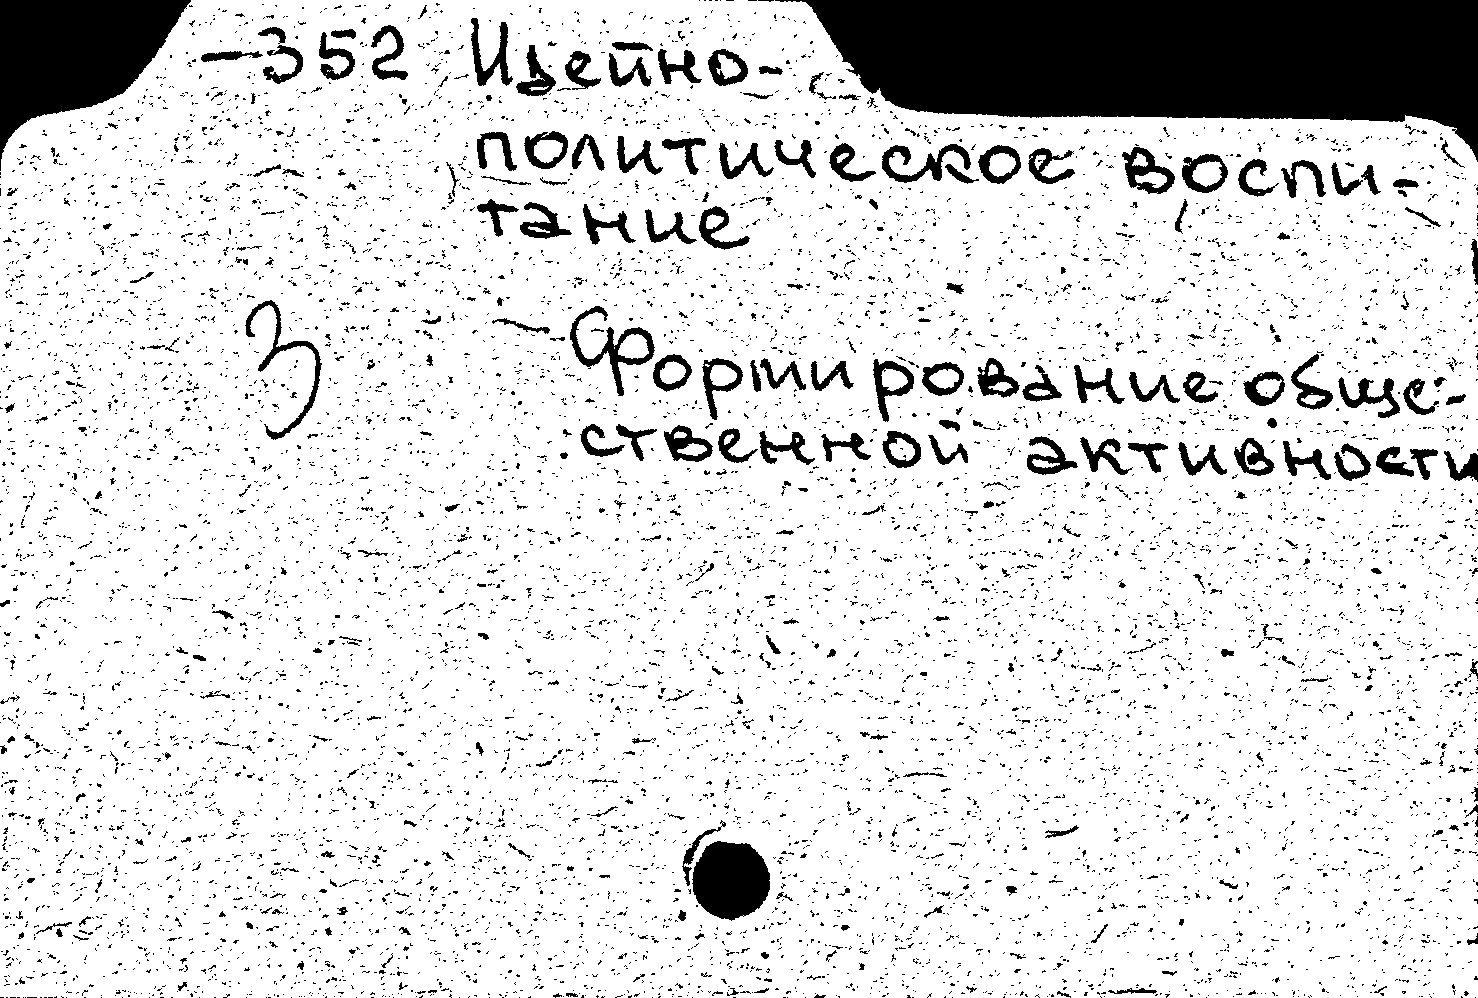 -352 Идейно-
политическое воспи-
тание
3 Формирование обще-
ственной активности